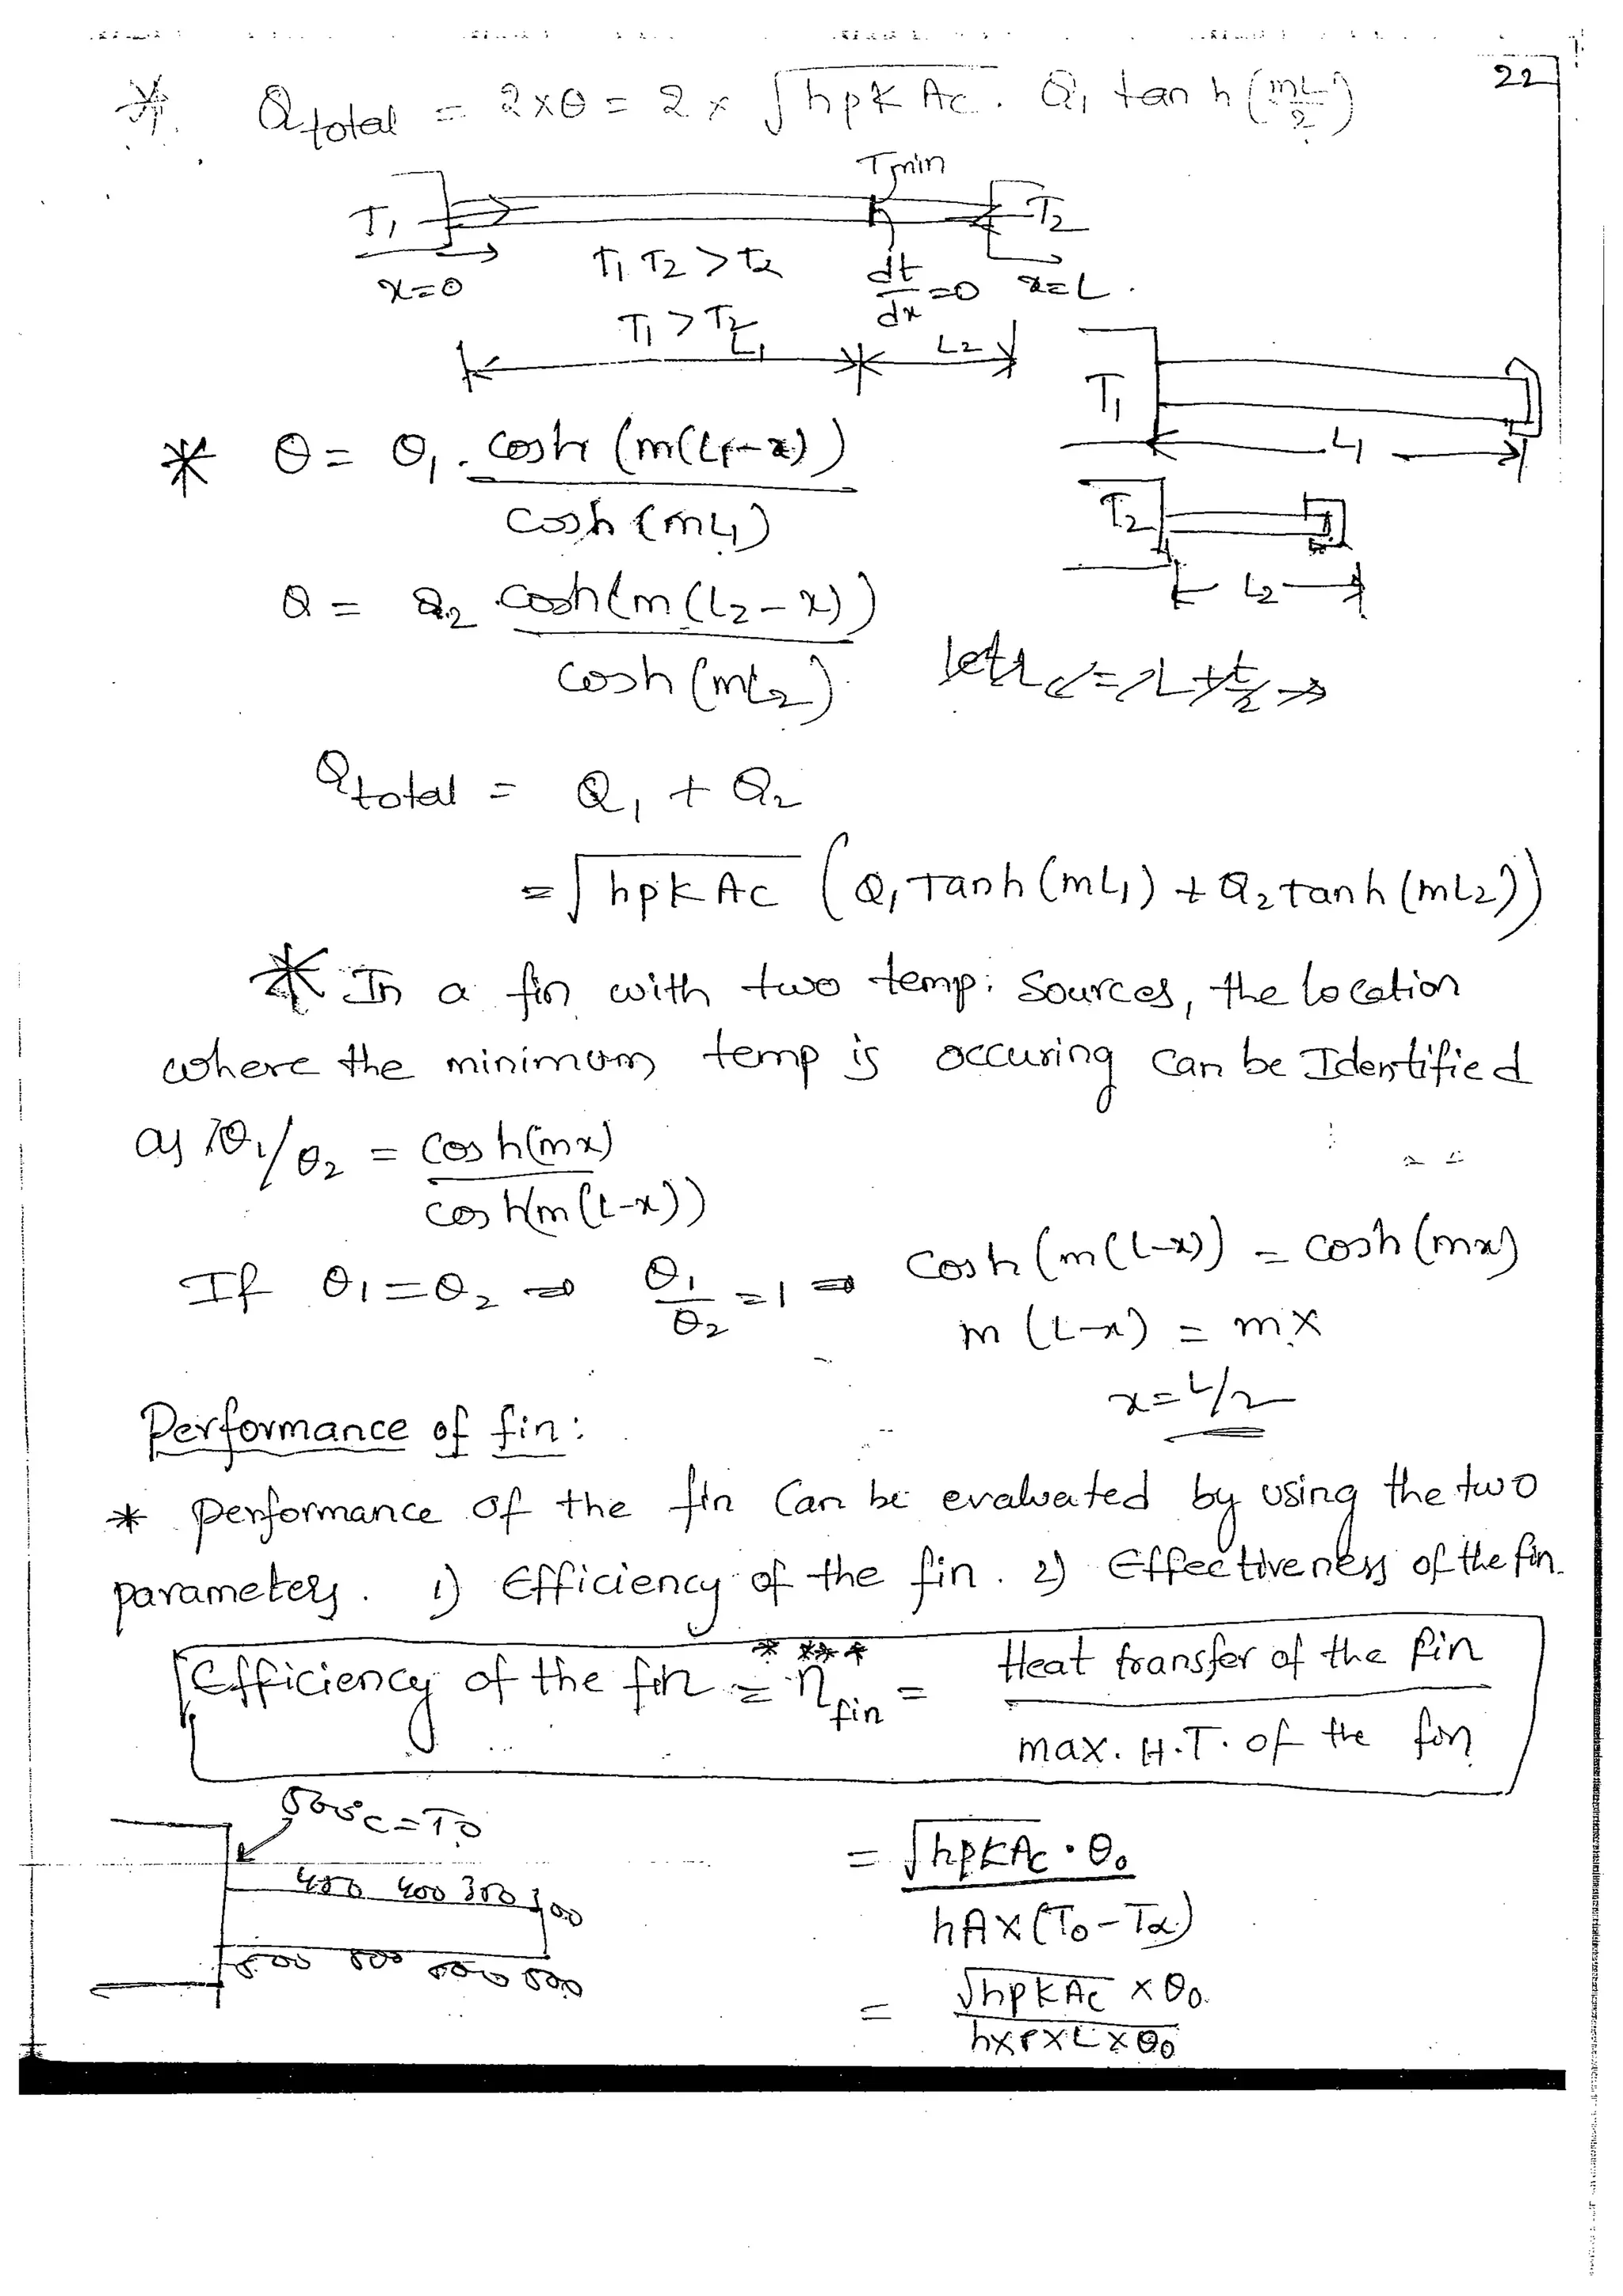 22
* Q total = 2×θ = 2 × √hpkAc . θ₁ tan h (mL/2)
T min
T₁ T₂
x=0 T₁ T₂ > Tα dt/dx =0 x=L.
T₁ > T₂
L₁ L₂
T₁
L₁
* θ = θ₁ . cosh (m(L₁-x)) / cosh (mL₁)
T₂
L₂
θ = θ₂ cosh(m(L₂-x)) / cosh (mL₂)
Q total = Q₁ + Q₂
= √hpkAc (θ₁ Tanh (mL₁) + θ₂ tanh (mL₂))
* In a fin with two temp: Sources, the location
where the minimum temp is occuring can be Identified
as θ₁/θ₂ = cosh(mx) / cosh(m(L-x))
If θ₁=θ₂ ⇒ θ₁/θ₂ =1 ⇒ cosh (m(L-x)) = cosh (mx)
m (L-x) = mx
x = L/2
Performance of fin:
* performance of the fin Can be evaluated by using the two
parameters. 1) Efficiency of the fin. 2) Effectiveness of the fin.
Efficiency of the fin = η fin = Heat transfer of the fin / max. H.T. of the fin
* ** *
500°C = T₀
450 400 300 200
500 500 500 500
= √hpkAc . θ₀ / hA×(T₀-Tα)
= √hpkAc × θ₀ / h×P×L×θ₀